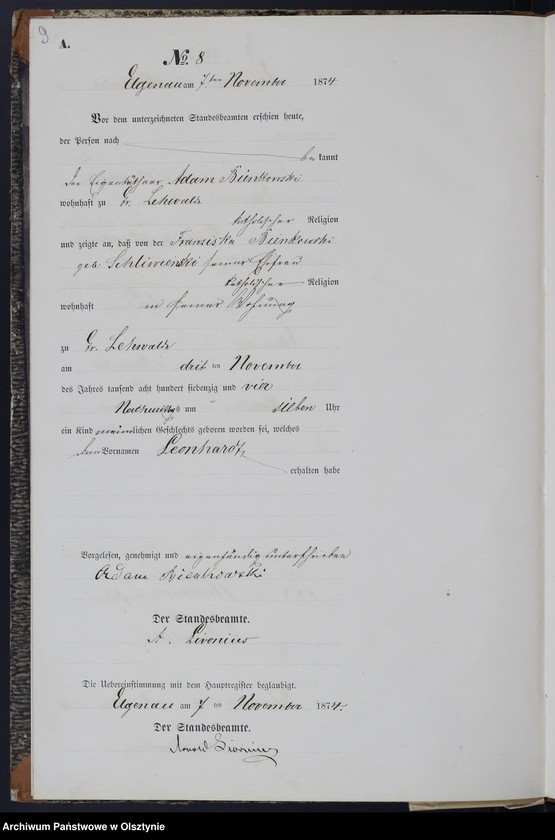 9
A.
No 8
Elgenau am 7ten November 1874
Vor dem unterzeichneten Standesbeamten erschien heute,
der Person nach
be kannt
der Eigenkäthner Adam Bienkowski
wohnhaft zu Gr. Lehwalde
katholischer Religion
und zeigte an, daß von der Franziska Bienkowski
geb. seiner Ehefrau
katholischer Religion
wohnhaft in seiner Wohnung
zu Gr. Lehwalde
am dritten November
des Jahres tausend acht hundert siebenzig und vier
Nachmittags um sieben Uhr
ein Kind männlichen Geschlechts geboren worden sei, welches
den Vornamen Leonhardt
erhalten habe
Vorgelesen, genehmigt und eigenhändig unterschrieben
Adam Bienkowski
Der Standesbeamte.
A. Livonius
Die Uebereinstimmung mit dem Hauptregister beglaubigt.
Elgenau am 7 ten November 1874.
Der Standesbeamte.
Arnold Livonius
Archiwum Państwowe w Olsztynie